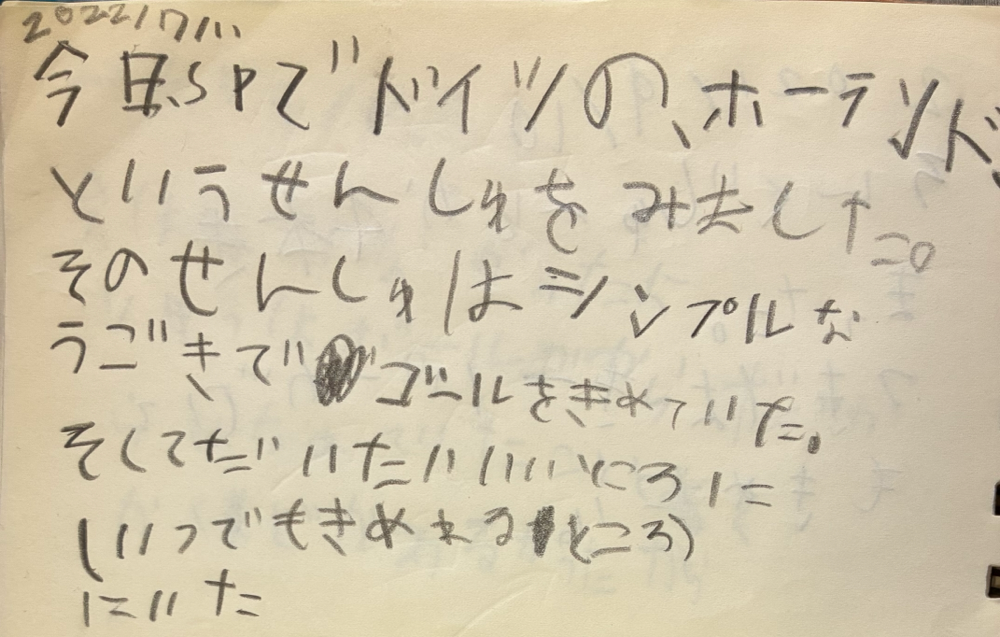 2022/7/11
今日、SPで、ドイツの、ホーランド、
というせんしゅをみました。
そのせんしゅはシンプルな
うごきでゴールをきめていた。
そしてだいたいいいところに
(いつでもきめれるところ)
にいた